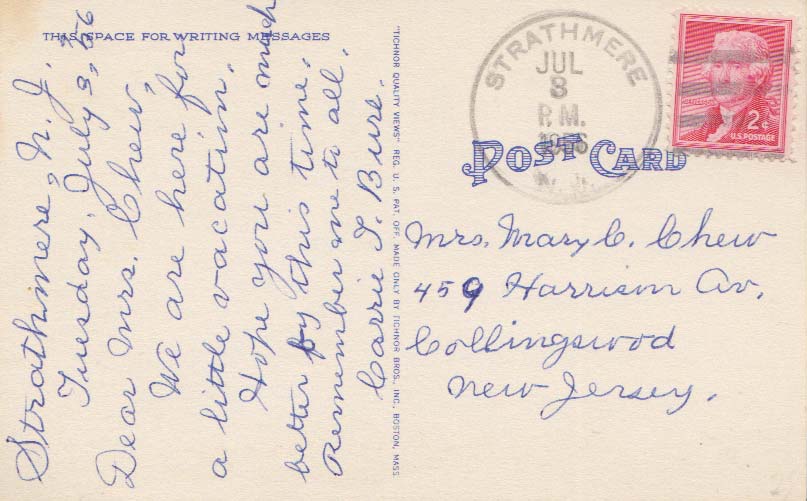 THIS SPACE FOR WRITING MESSAGES
Strathmere, N. J.
Tuesday, July 3, '56
Dear Mrs. Chew,
We are here for
a little vacation.
Hope you are much
better by this time.
Remember me to all.
Carrie T. Bure.
"TICHNOR QUALITY VIEWS" REG. U. S. PAT. OFF. MADE ONLY BY TICHNOR BROS., INC., BOSTON, MASS.
STRATHMERE
JUL
3
P.M.
1956
N.J.
2¢
U.S. POSTAGE
POST CARD
Mrs. Mary C. Chew
459 Harrison Av.
Collingswood
New Jersey.